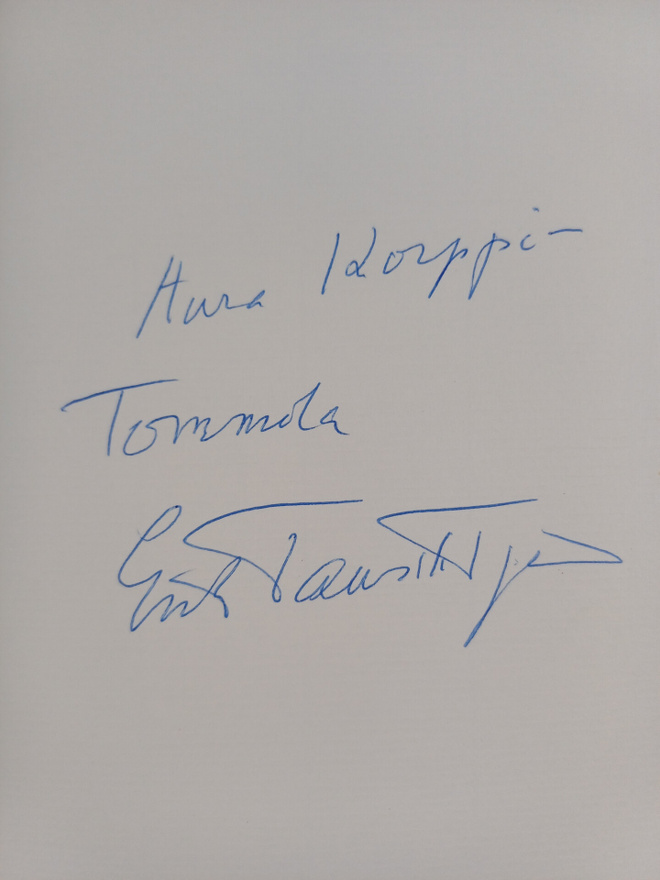 Aura Korppi-
Tommola
Erik Tawaststjerna